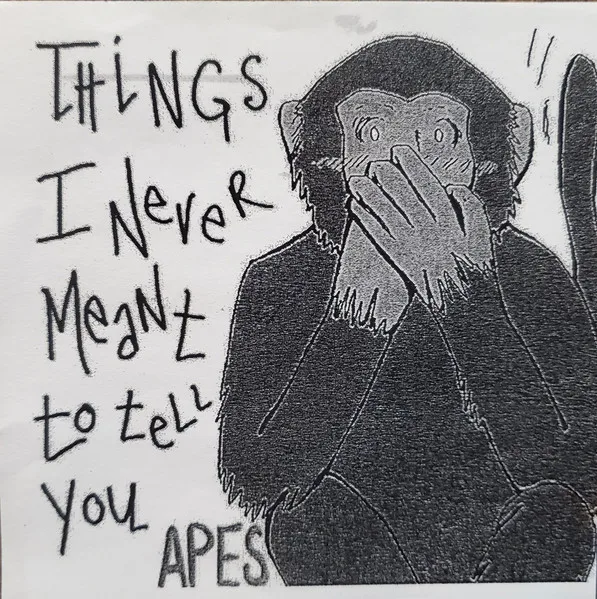 THiNGS
I NeveR
MeaNt
to teLL
you
APES